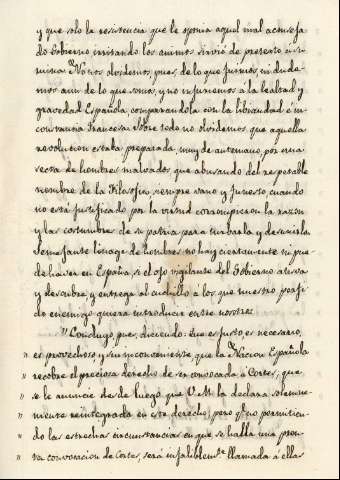 y que solo la resistencia que le oponia aquel mal aconseja
do Gobierno, irritando los animos sirvió de pretexto á su
ruina. No nos olvidemos, pues, de lo que fuimos, ni dude-
mos aun de lo que somos, y no injuriemos á la lealtad y
gravedad Española, comparandola con la liviandad é in-
constancia Francesa. Sobre todo no olvidemos, que aquella
revolucion estaba preparada, muy de antemano, por una
secta de hombres malvados, que abusando del respetable
nombre de la Filosofia, siempre vano y funesto, cuando
no está justificado por la virtud corrompieron la razon
y las costumbres de su patria, para turbarla y desunirla.
Semejante linage de hombres no hay ciertamente ni pue-
de haver en España, si el ojo vigilante del Gobierno atisva
y descubre, y entrega al cuchillo á los que nuestro perfi-
do enemigo quiera introducir entre nosotros.
" Concluyo, pues, diciendo: Que es justo, es necesario,
" es provechoso y sin inconveniente, que la Nacion Española
" recobre el precioso derecho de ser convocada á Cortes; que
" se le anuncie desde luego, que V. M. la declara solemne-
" mente reintegrada en este derecho; pero q.e no permitien-
" do las estrechas circunstancias en que se halla una pron-
" ta convocacion de Cortes, será infaliblem.te llamada á ellas